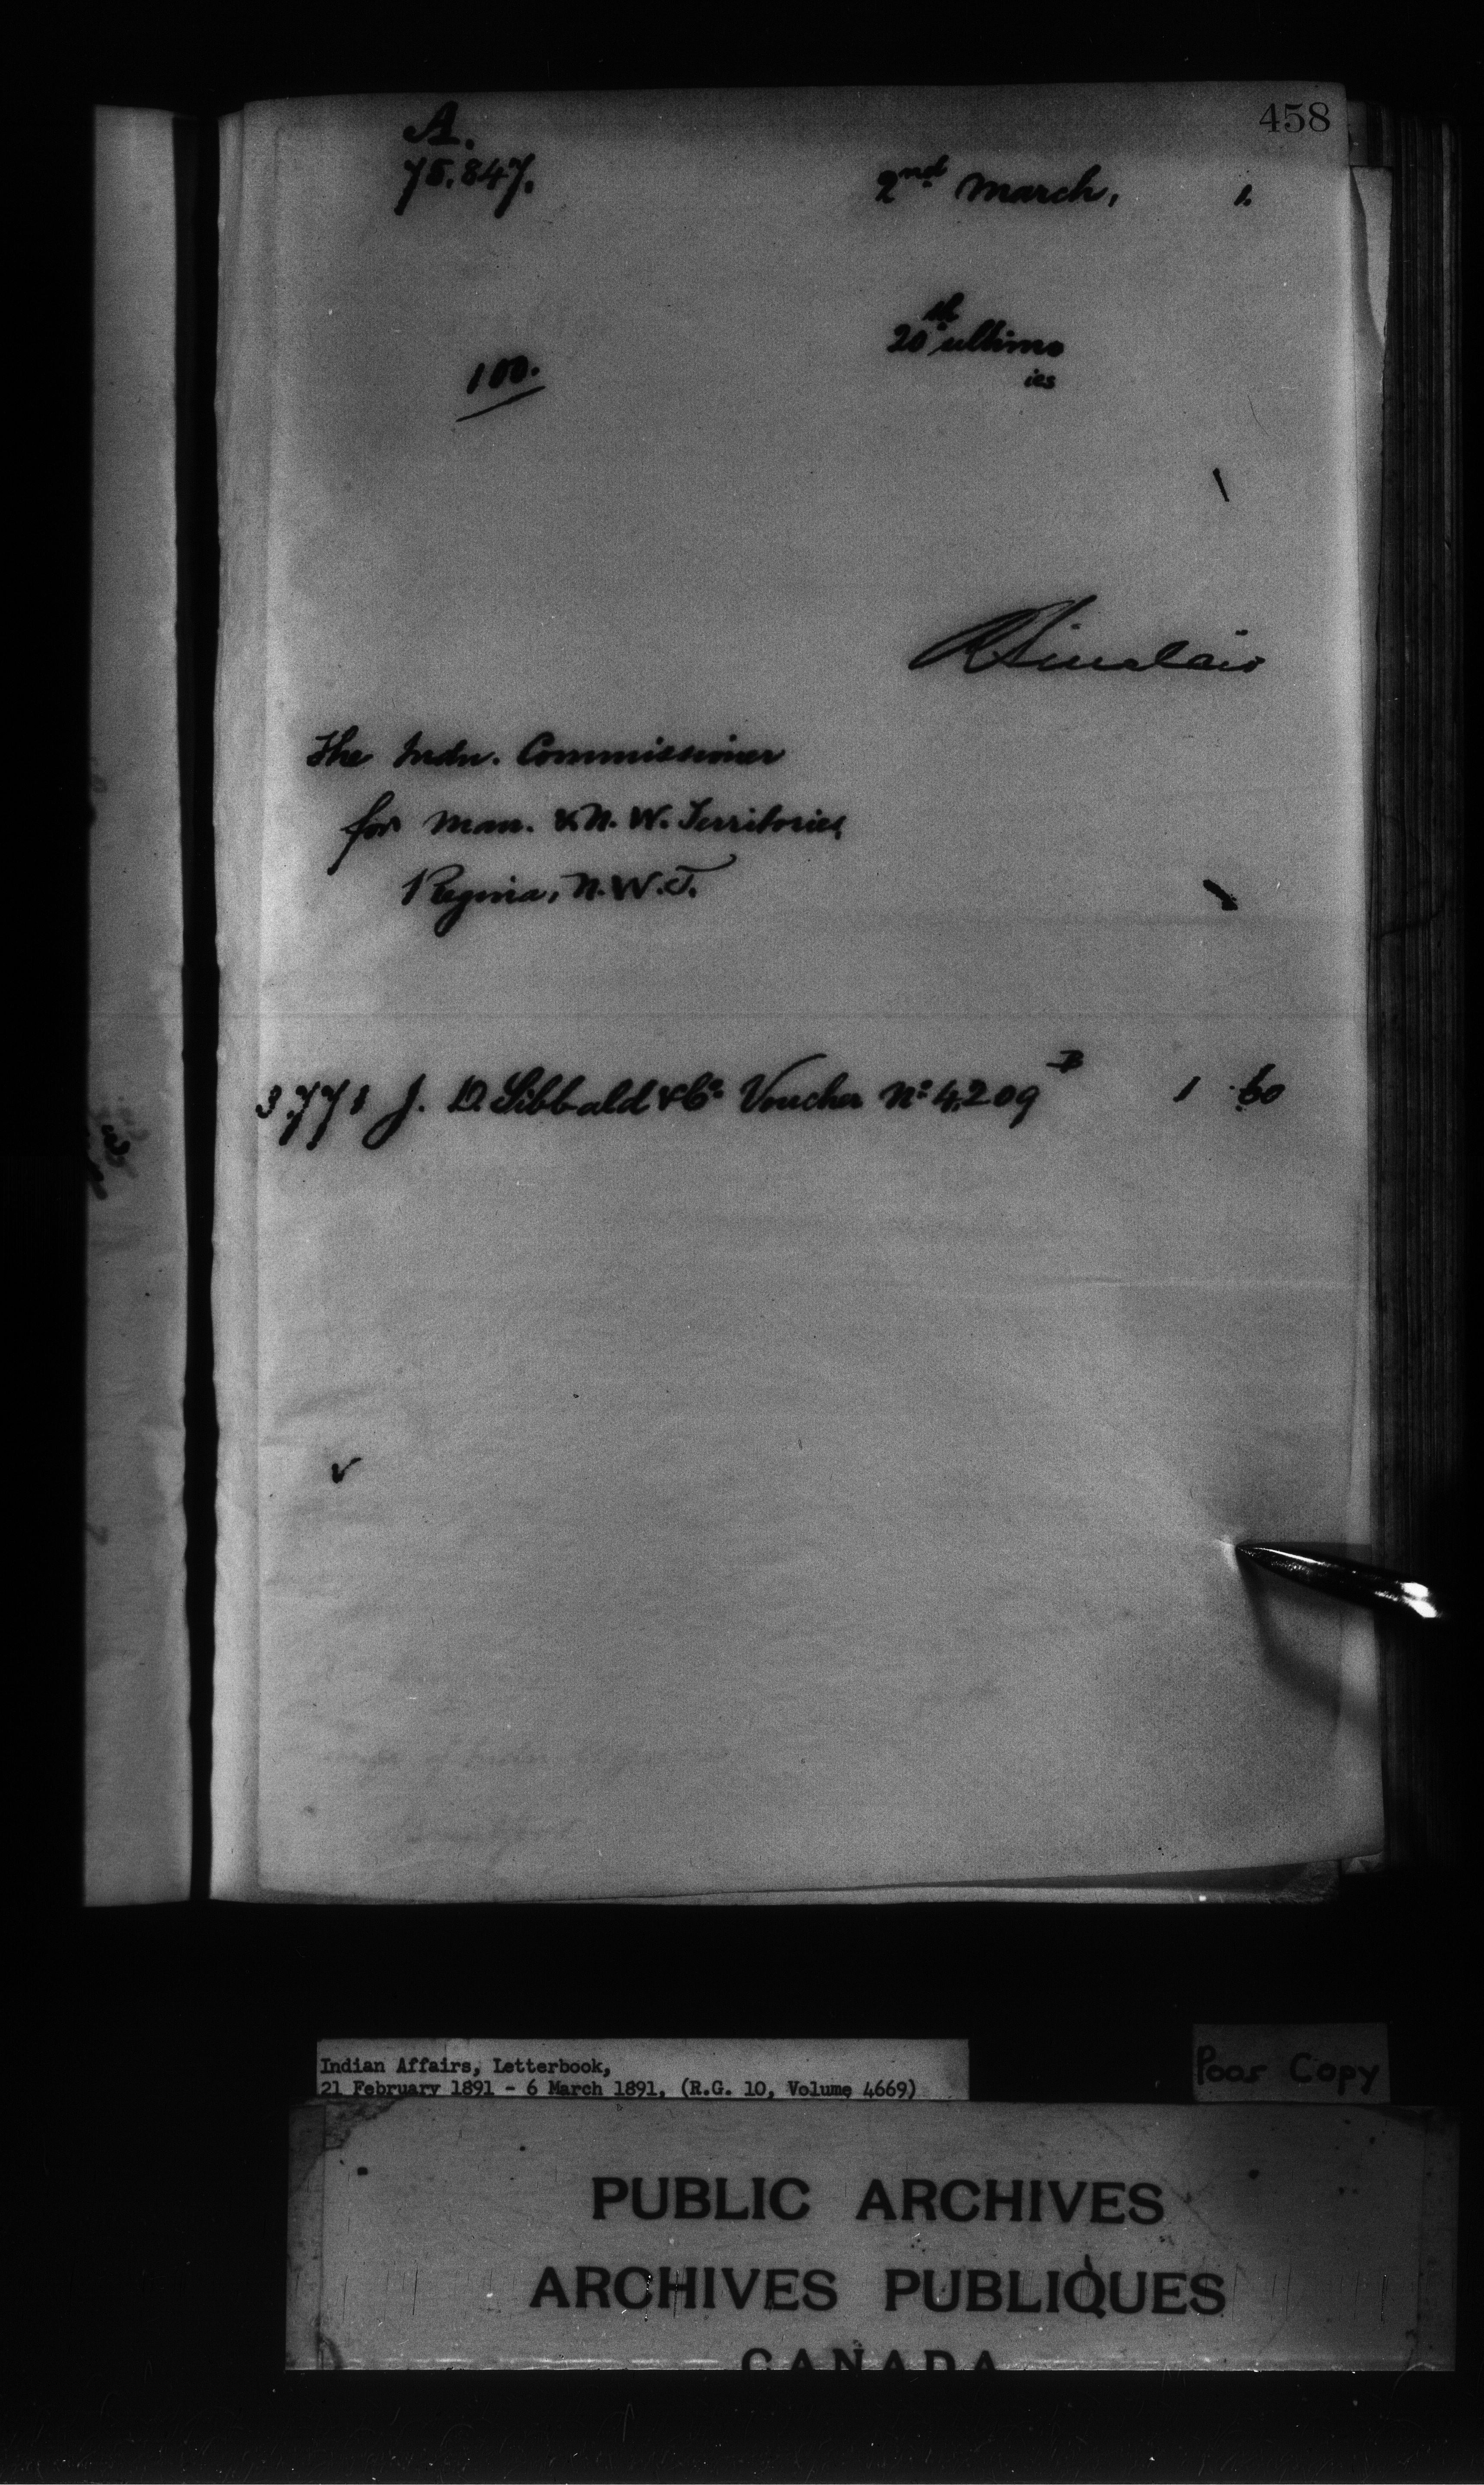 458
A.
75.847.
2nd March, 1.
20th ultimo
ies
100.
R Sinclair
The Indn. Commissioner
for Man. & N. W. Territories
Regina, N.W.T.
3771 J. D. Sibbald & Co. Voucher No. 4209 B 1 60
Indian Affairs, Letterbook,
21 February 1891 - 6 March 1891, (R.G. 10, Volume 4669)
Poor Copy
PUBLIC ARCHIVES
ARCHIVES PUBLIQUES
CANADA